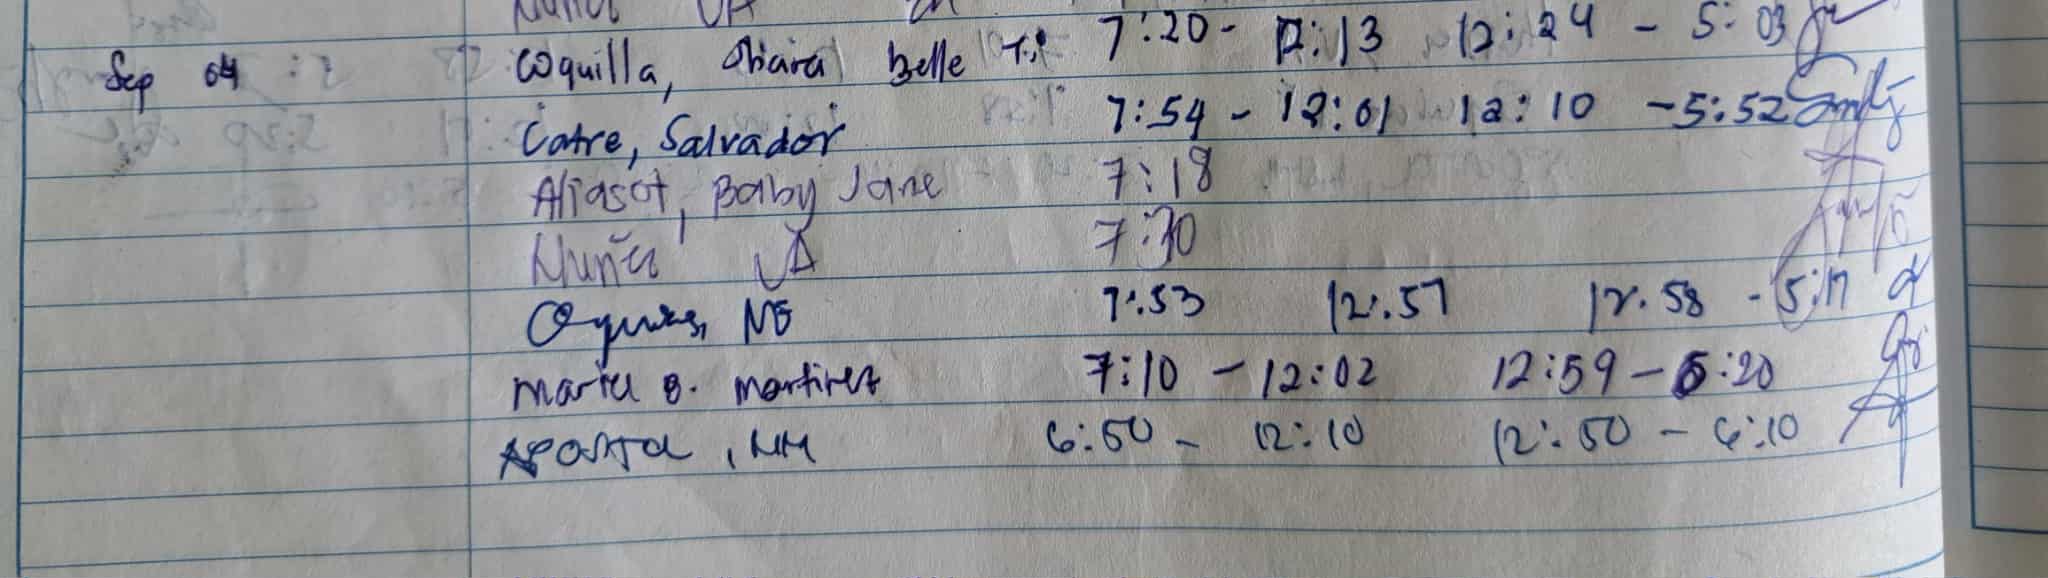 Sep 04 Coquilla, Shiara Belle T. 7:20 - 12:13 12:24 - 5:03
Catre, Salvador 7:54 - 12:01 12:10 - 5:52
Aliasot, Baby Jane 7:18
Nuñez JA 7:30
NB 7:53 12:57 12:58 - 5:17
Maricel B. Martinez 7:10 - 12:02 12:59 - 5:20
6:50 - 12:10 12:50 - 6:10